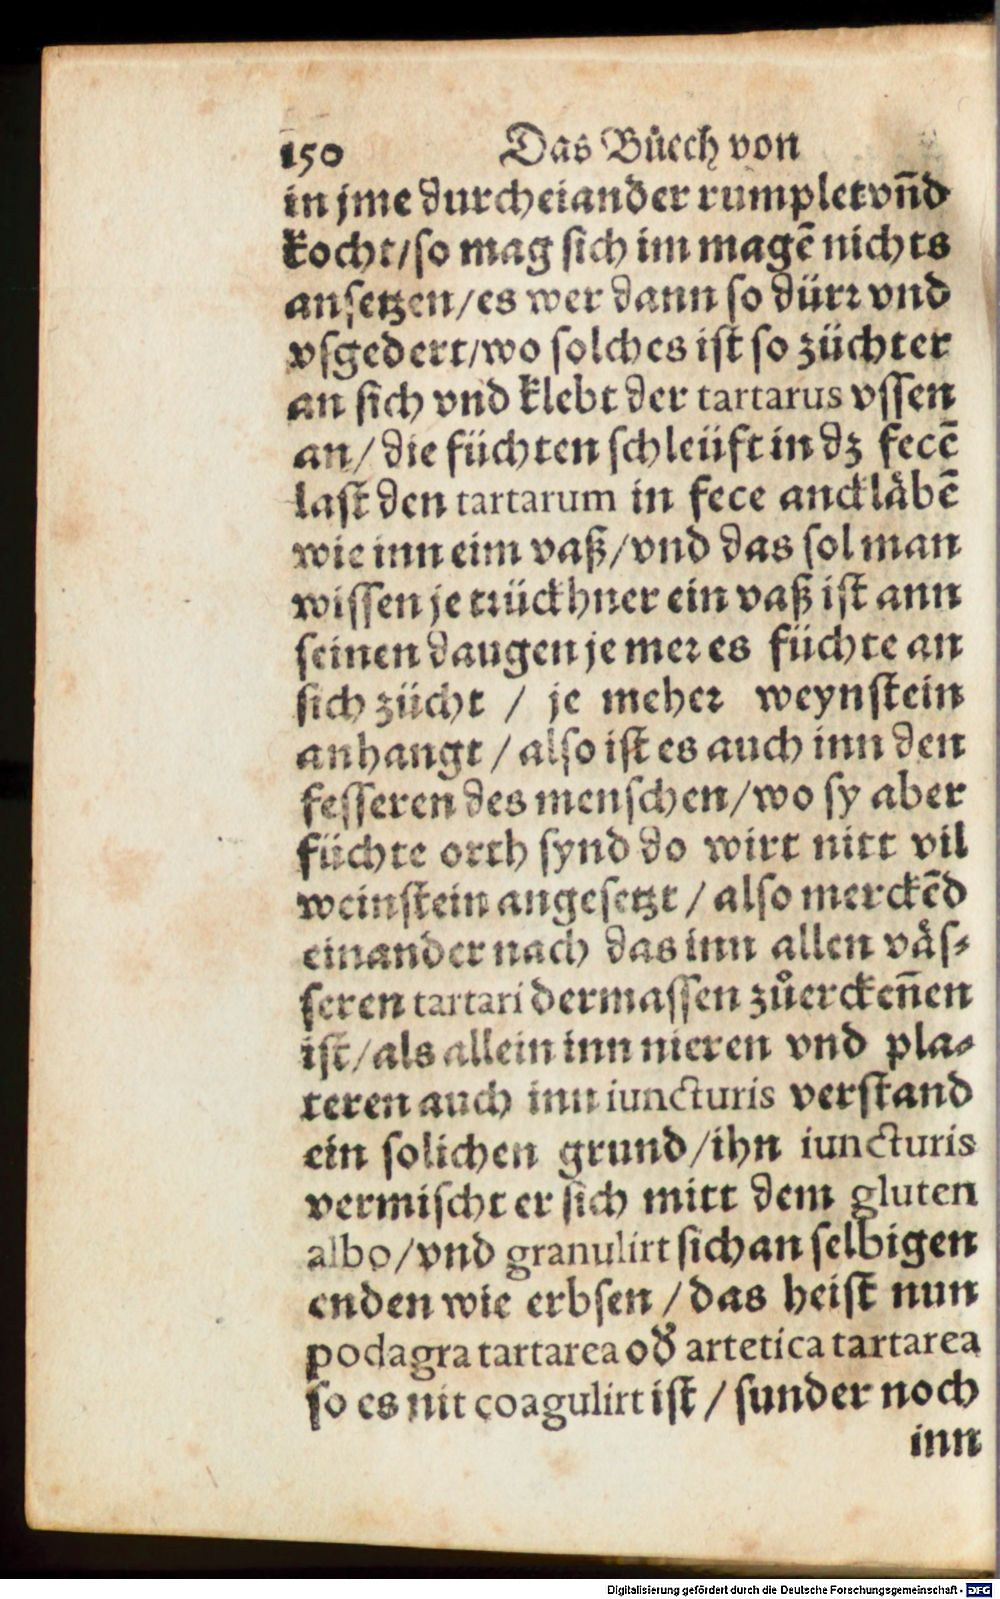 150 Das Bůech von
in jme durcheiander rumplet vñd
kocht/so mag sich im magē nichts
ansetzen/es wer dann so dürꝛ vnd
vsgedert/wo solches ist so züchter
an sich vnd klebt der tartarus vssen
an/die füchten schleüft in dz fecē
last den tartarum in fece anckläbē
wie inn eim vaß/vnd das sol man
wissen je trückhner ein vaß ist ann
seinen daugen je meꝛ es füchte an
sich zücht / je meheꝛ weynstein
anhangt / also ist es auch inn den
fesseren des menschen/wo sy aber
füchte orth synd do wirt nitt vil
weinstein angesetzt / also merckēd
einander nach das inn allen väs⸗
seren tartari dermassen zůerckeñen
ist/als allein inn nieren vnd pla⸗
teren auch inn iuncturis verstand
ein solichen grund/ihn iuncturis
vermischt er sich mitt dem gluten
albo/vnd granulirt sich an selbigen
enden wie erbsen /das heist nun
podagra tartarea od̕ artetica tartarea
so es nit coagulirt ist / sunder noch
inn
Digitalisierung gefördert durch die Deutsche Forschungsgemeinschaft - DFG